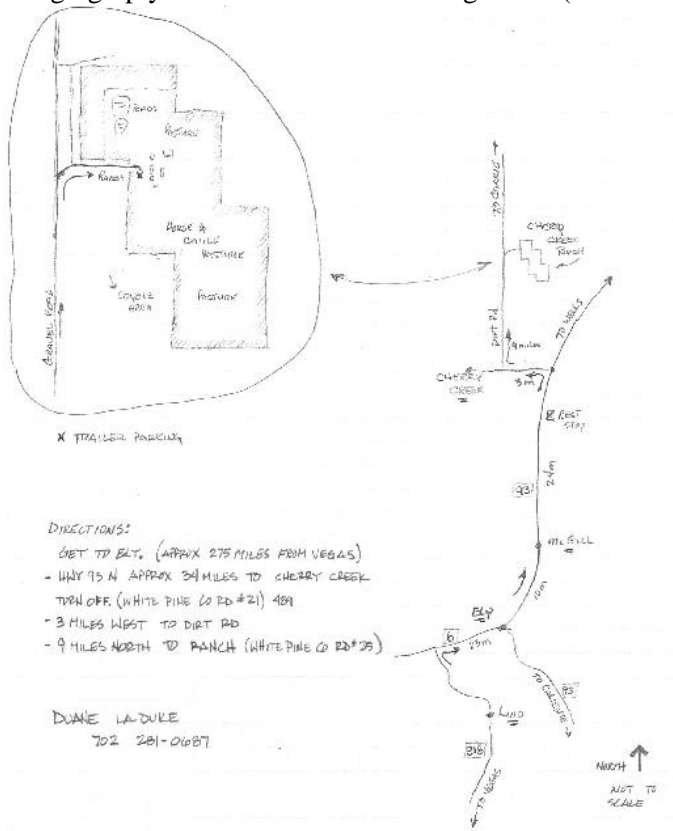 PONDS
PASTURE
RANCH
HORSE &
CATTLE
PASTURE
PASTURE
COYOTE
AREA
GRAVEL ROAD
X TRAILER PARKING
CHERRY
CREEK
RANCH
DIRT RD
9 miles
TO WELLS
CHERRY
CREEK
3m
REST
STOP
24m
93
McGILL
10m
ELY
6
23m
93
LUND
318
TO VEGAS
DIRECTIONS:
GET TO ELY. (APPROX 275 MILES FROM VEGAS)
- HWY 93 N APPROX 34 MILES TO CHERRY CREEK
TURN OFF. (WHITE PINE CO RD #21) 489
- 3 MILES WEST TO DIRT RD
- 9 MILES NORTH TO RANCH (WHITE PINE CO RD #25)
DUANE LADUKE
702 281-0687
NORTH
NOT TO
SCALE